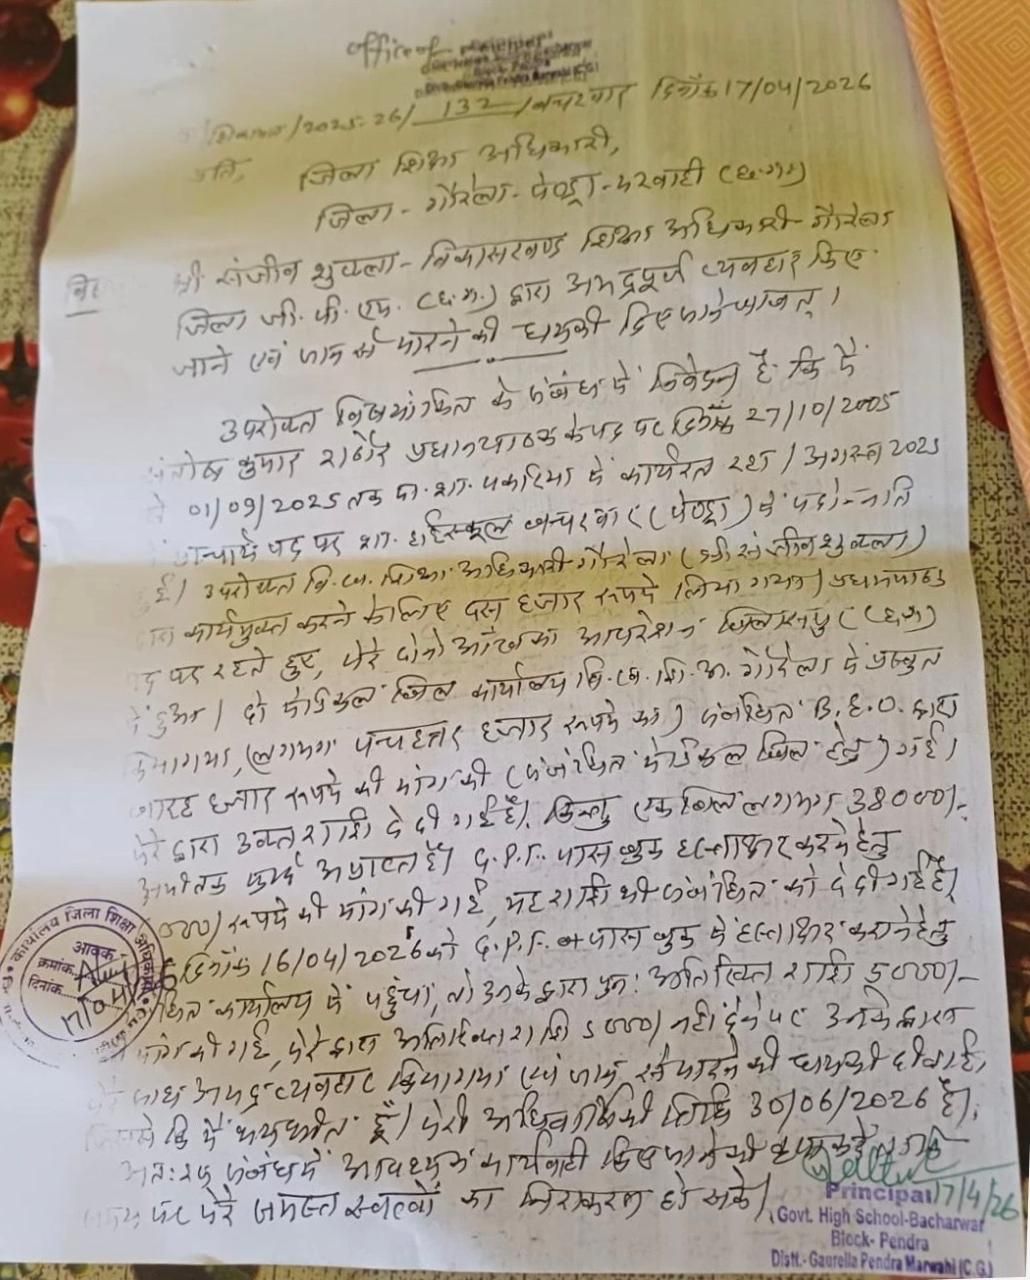 Office of
क्र/शिकायत/2025-26/132/बचरवार दिनाँक 17/04/2026
प्रति,
जिला शिक्षा अधिकारी,
जिला - गौरेला - पेण्ड्रा - मरवाही (छ.ग.)
श्री संजीव शुक्ला - विकासखण्ड शिक्षा अधिकारी - गौरेला
जिला जी. पी. एम. (छ.ग.) द्वारा अभद्रपूर्ण व्यवहार किए
जाने एवं जान से मारने की धमकी दिए जाने बाबत्।
उपरोक्त विषयांकित के संबंध में निवेदन है कि मैं
संतोष कुमार राठौर प्रधानपाठक के पद पर दिनाँक 27/10/2005
से 01/09/2025 तक मा. शा. पकरिया में कार्यरत रहा। अगस्त 2025
प्राचार्य पद पर शा. हाईस्कूल बचरवार (पेण्ड्रा) में पदोन्नति
हुई। उपरोक्त वि.ख. शिक्षा अधिकारी गौरेला (श्री संजीव शुक्ला)
द्वारा कार्यमुक्त करने के लिए दस हजार रूपये लिया गया। प्रधानपाठक
पद पर रहते हुए, मेरे दोनो आँख का आपरेशन बिलासपुर (छ.ग.)
में हुआ। दो मेडिकल बिल कार्यालय वि.ख.शि.अ. गौरेला में प्रस्तुत
किया गया, (लगभग पन्चहत्तर हजार रूपये का) संबंधित B.E.O. द्वारा
बारह हजार रूपये की मांग की (संबंधित मेडिकल बिल हेतु) गई।
मेरे द्वारा उक्त राशि दे दी गई है। किन्तु एक बिल लगभग 38000/-
अभी तक मुझे अप्राप्त है। G.P.F. पास बुक हस्ताक्षर करने हेतु
रूपये की मांग की गई, यह राशि भी संबंधित को दे दी गई है।
दिनाँक 16/04/2026 को G.P.F. पास बुक में हस्ताक्षर कराने हेतु
कार्यालय में पहुंचा, तो उनके द्वारा पुनः अतिरिक्त राशि 5000/-
मांग की गई, मेरे द्वारा अतिरिक्त राशि 5000/ नहीं देने पर उनके द्वारा
मेरे साथ अभद्र व्यवहार किया गया एवं जान से मारने की धमकी दी गई,
जिससे कि मैं भयभीत हूँ। मेरी अधिवार्षिकी तिथि 30/06/2026 है।
अतः इस संबंध में आवश्यक कार्यवाही किए जाने की कृपा करें, ताकि
समय पर मेरे समस्त स्वत्वों का निराकरण हो सके।
17/4/26
Principal
Govt. High School-Bacharwar
Block- Pendra
Distt.- Gaurella Pendra Marwahi (C.G.)
कार्यालय जिला शिक्षा अधिकारी
आवक
क्रमांक
दिनांक 17/04/